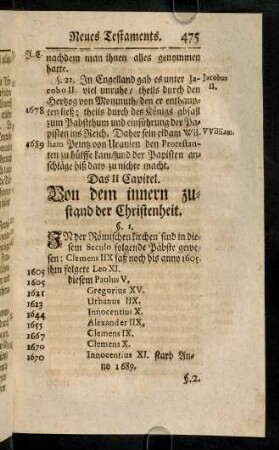 Neues Testaments. 475
J. C. nachdem man ihnen alles genommen
hatte.
§. 21. In Engelland gab es unter Ja- Jacobus
cobo II. viel unruhe/ theils durch den II.
Hertzog von Monmuth/ den er enthaup-
1678 ten ließ; theils durch des Königs abfall
zum Pabstthum und einführung der Pa-
pisten ins Reich. Daher sein eidam Wil- VVilliam.
1689 liam Printz von Uranien den Protestan-
ten zu hülffe kam/und der Papisten an-
schläge biß dato zu nichte macht.
Das II Capitel.
Von dem innern zu-
stand der Christenheit.
§. 1.
IN der Römischen kirchen sind in die-
sem Seculo folgende Päbste gewe-
sen: Clemens IIX saß noch bis anno 1605.
1605 ihm folgete Leo XI.
1605 diesem Paulus V.
1621 Gregorius XV.
1623 Urbanus IIX.
1644 Innocentius X.
1655 Alexander IIX.
1667 Clemens IX.
1670 Clemens X.
1670 Innocentius XI. starb An-
no 1689.
§. 2.